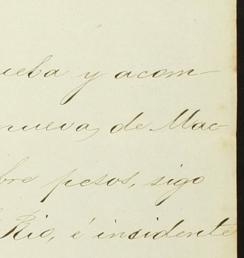 ueba y acom-
nueva, de Mac-
bre pesos, sigo
Rio, é insidente